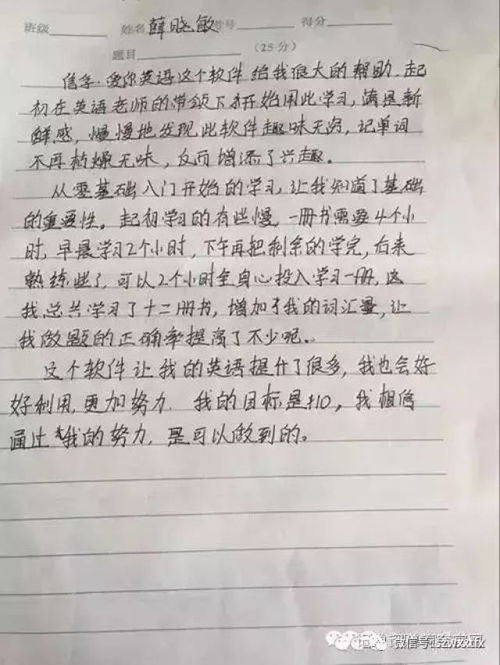 班级 姓名 薛晓敏 学号 得分
题目 (25分)
信孚·爱尔英语这个软件给我很大的帮助。起
初在英语老师的带领下开始用此学习，满是新
鲜感，慢慢地发现此软件趣味无穷，记单词
不再枯燥无味，反而增添了兴趣。
从零基础入门开始的学习，让我知道了基础
的重要性。起初学习的有些慢，一册书需要4个小
时，早晨学习2个小时，下午再把剩余的学完，后来
熟练些了，可以2个小时全身心投入学习一册，这
我总共学习了十二册书，增加了我的词汇量，让
我做题的正确率提高了不少呢。
这个软件让我的英语提升了很多，我也会好
好利用，更加努力。我的目标是110，我相信
通过我的努力，是可以做到的。